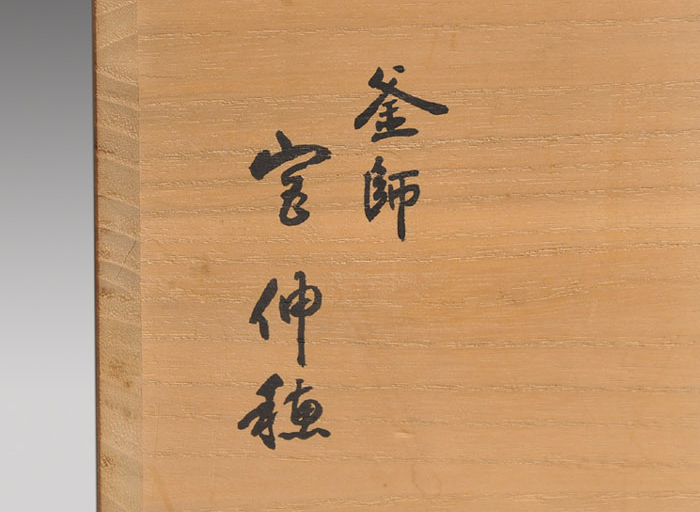 釜師
宮伸穂